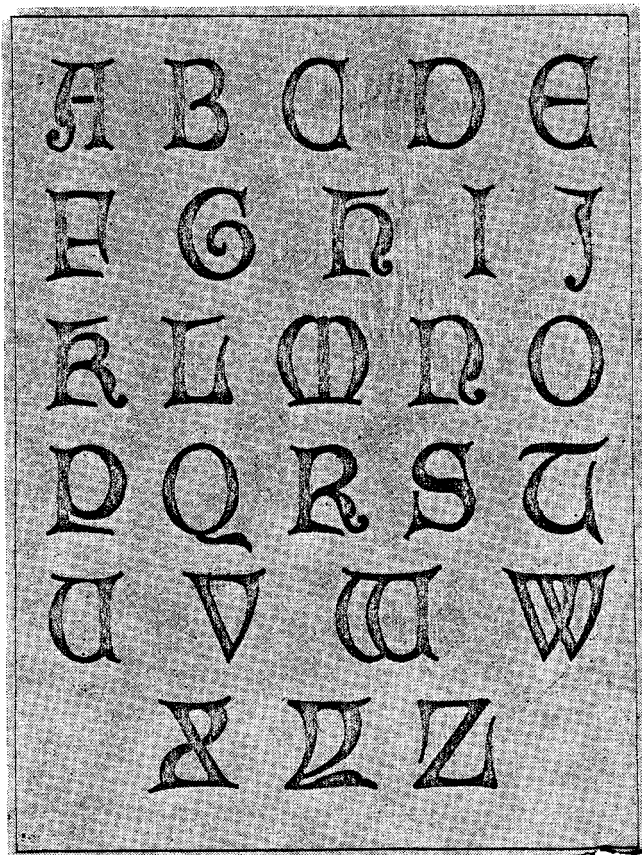 A B C D E
F G H I J
K L M N O
P Q R S T
U V W W
X Y Z